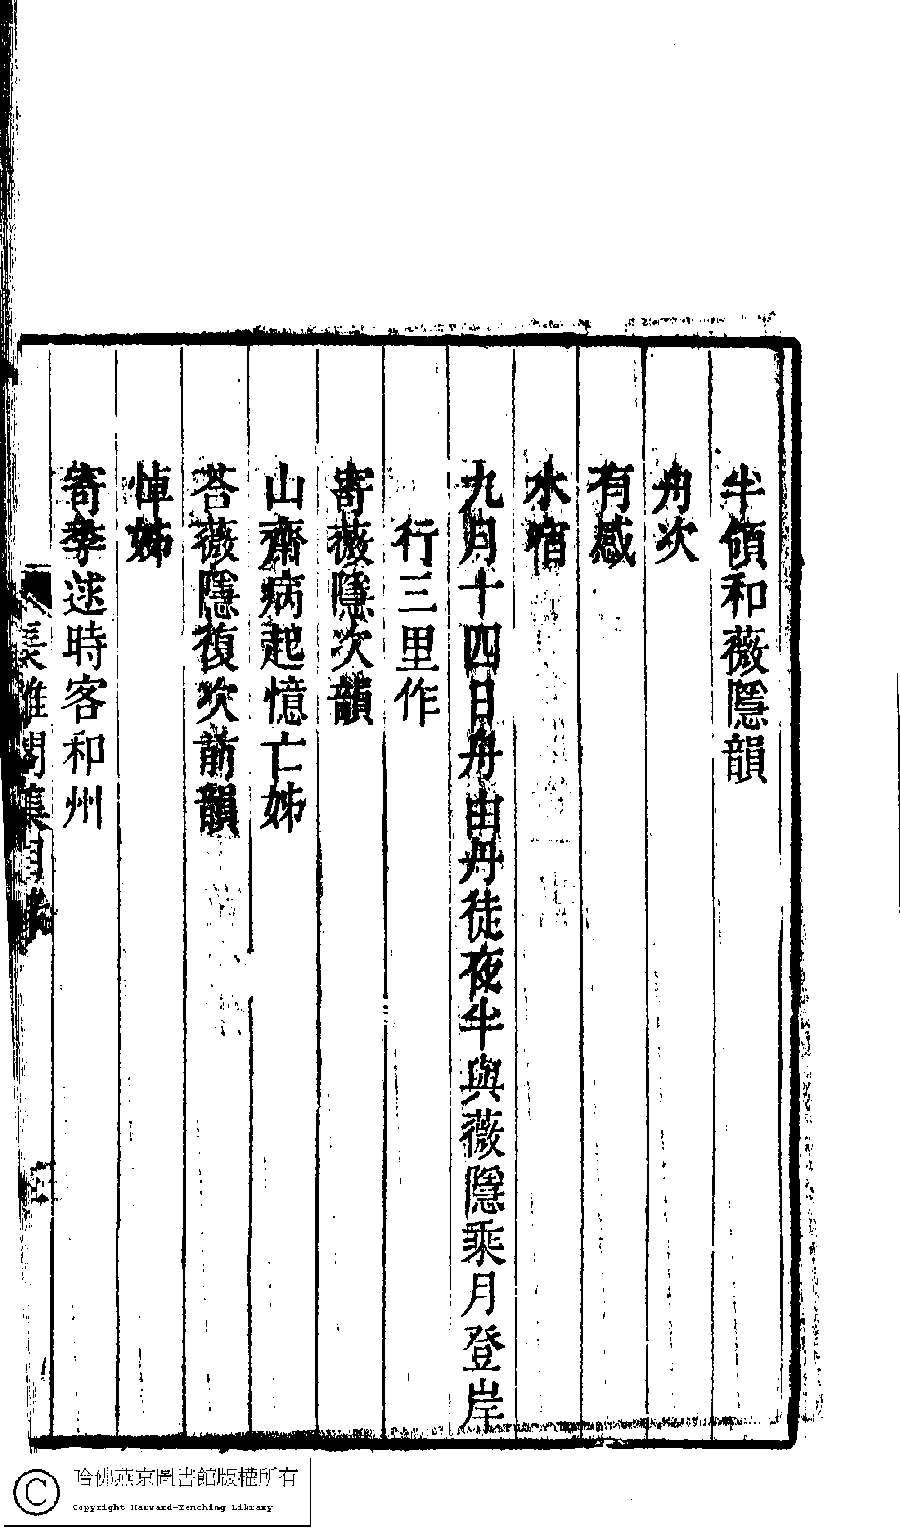 半領和薇隱韻
舟次
有感
水宿
九月十四日舟由丹徒夜半與薇隱乘月登岸
行三里作
寄薇隱次韻
山齋病起憶亡姊
荅薇隱復次前韻
悼姊
寄季逑時客和州
哈佛燕京圖書館版權所有
Copyright Harvard-Yenching Library